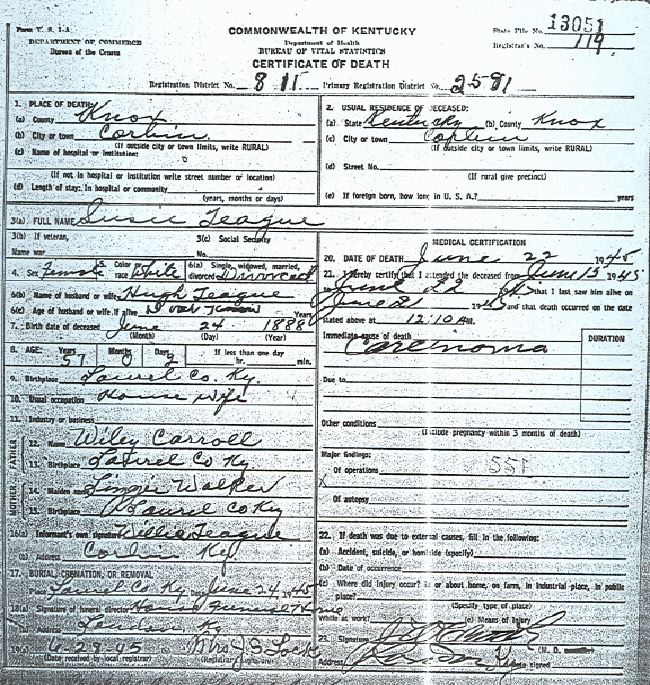 Form V. S. 1-A
DEPARTMENT OF COMMERCE
Bureau of the Census
COMMONWEALTH OF KENTUCKY
Department of Health
BUREAU OF VITAL STATISTICS
CERTIFICATE OF DEATH
State File No. 13051
Registrar's No. 119
Registration District No. 811 Primary Registration District No. 2581
1. PLACE OF DEATH:
(a) County Knox
(b) City or town Corbin
(If outside city or town limits, write RURAL)
(c) Name of hospital or institution:
(If not in hospital or institution write street number or location)
(d) Length of stay: In hospital or community
(years, months or days)
2. USUAL RESIDENCE OF DECEASED:
(a) State Kentucky (b) County Knox
(c) City or town Corbin
(If outside city or town limits, write RURAL)
(d) Street No.
(If rural give precinct)
(e) If foreign born, how long in U. S. A.? years
3(a) FULL NAME Susie Teague
3(b) If veteran,
Name war
3(c) Social Security
No.
4. Sex Female 5. Color or race White 6(a) Single, widowed, married, divorced Divorced
6(b) Name of husband or wife Hugh Teague
6(c) Age of husband or wife if alive Years
7. Birth date of deceased June 24 1888
(Month) (Day) (Year)
8. AGE: Years 57 Months 0 Days 2 If less than one day
hr. min.
9. Birthplace Laurel Co. Ky.
10. Usual occupation House wife
11. Industry or business
FATHER
12. Name Wiley Carroll
13. Birthplace Laurel Co Ky
MOTHER
14. Maiden name Lizzie Walker
15. Birthplace Laurel Co Ky
16(a) Informant's own signature Willie Teague
(b) Address Corbin Ky.
17. BURIAL, CREMATION, OR REMOVAL
Place Laurel Co Ky Date June 24, 1945
18(a) Signature of funeral director House Funeral Home
(b) Address London Ky
19(a) 6-29-45 Mrs J S Lock
(Date received by local registrar) (Registrar's signature)
MEDICAL CERTIFICATION
20. DATE OF DEATH June 22 1945
21. I hereby certify that I attended the deceased from June 15 1945
to June 22 1945 that I last saw him alive on
June 21 1945 and that death occurred on the date
stated above at 12:10 AM.
Immediate cause of death
Carcinoma
DURATION
Due to
Other conditions
(Include pregnancy within 3 months of death)
Major findings:
Of operations
551
Of autopsy
22. If death was due to external causes, fill in the following:
(a) Accident, suicide, or homicide (specify)
(b) Date of occurrence
(c) Where did injury occur? at or about home, on farm, in industrial place, in public
place?
(Specify type of place)
While at work? (e) Means of Injury
23. Signature
(M. D.
Address Date signed